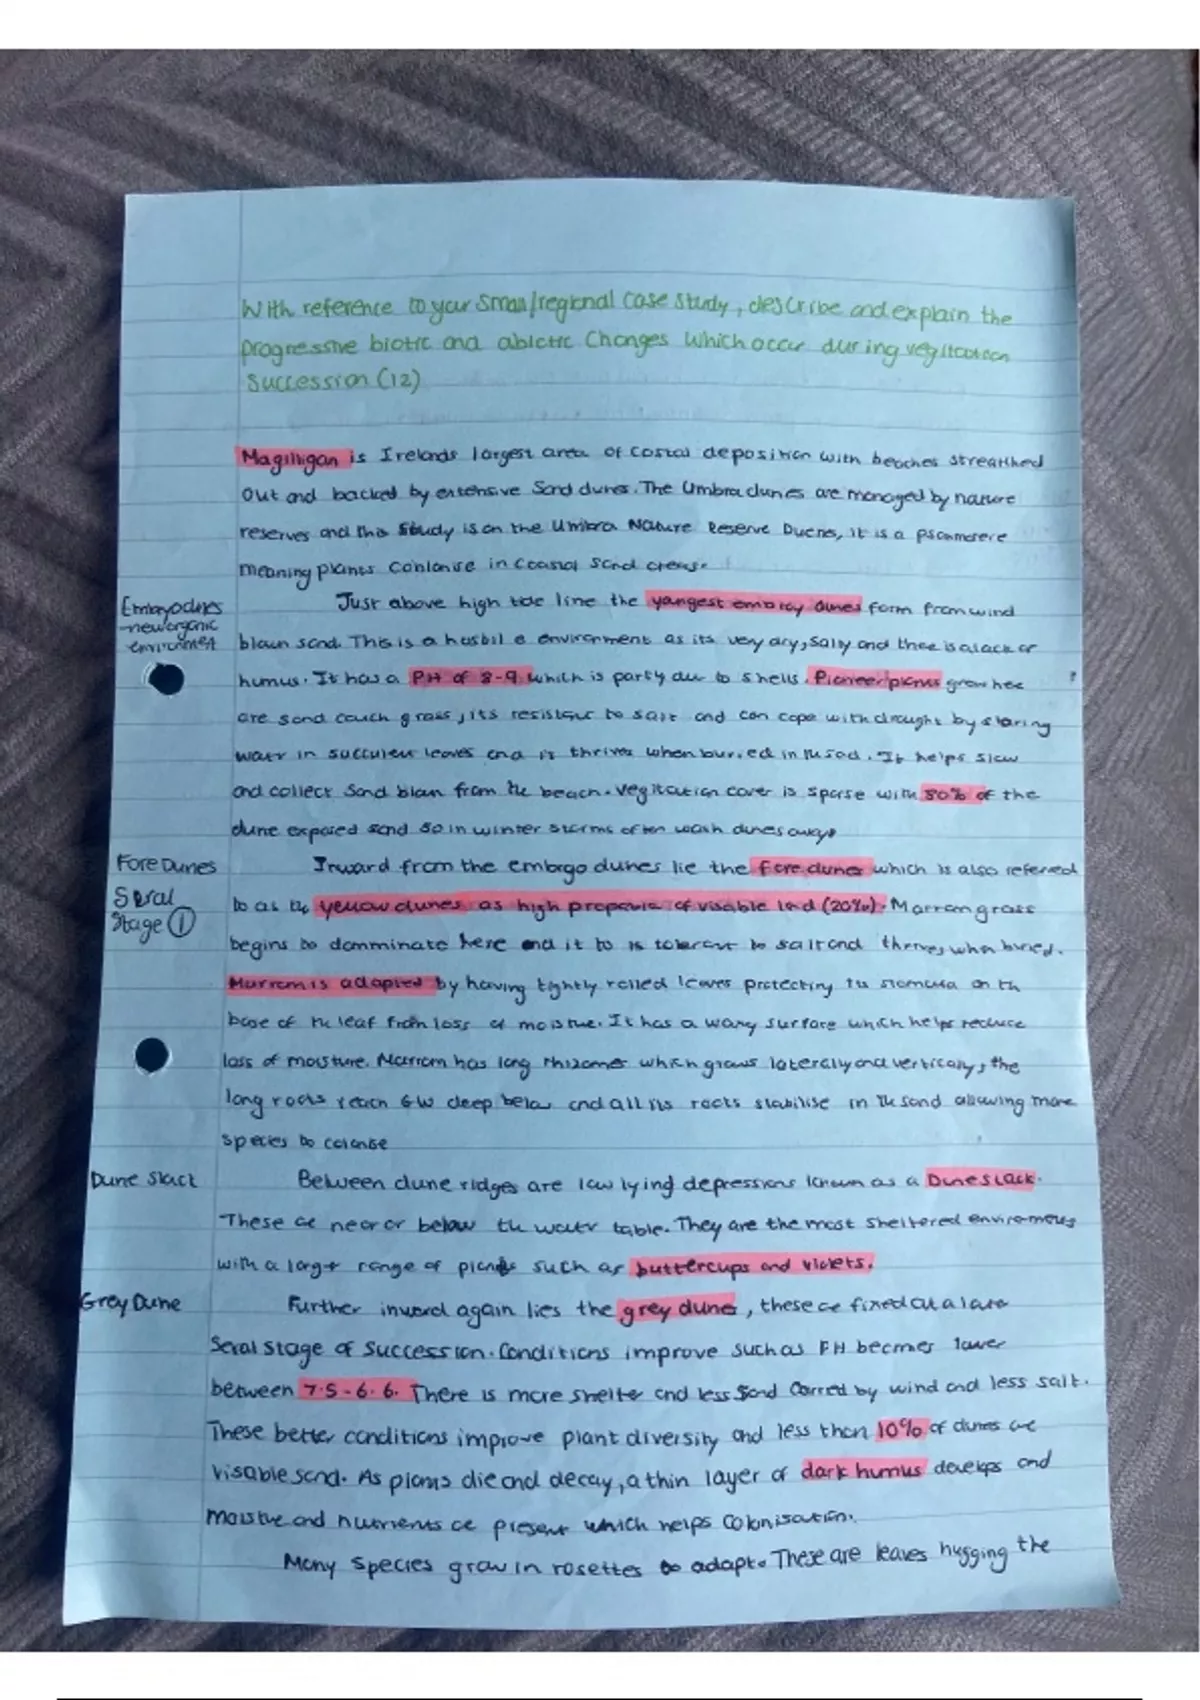 With reference to your small/regional case study, describe and explain the
progressive biotic and abiotic changes which occur during vegitation
Succession (12)
Magilligan is Irelands largest area of costal deposition with beaches streatched
out and backed by extensive Sand dunes. The Umbra dunes are managed by nature
reserves and this study is on the Umbra Nature Reserve Duenes, it is a psammosere
meaning plants colonise in coastal sand areas.
Embryo dunes
-new organic
environment
Just above high tide line the yangest embroy dunes form from wind
blown sand. This is a hosbile environment as its very dry, salty and there is a lack of
humus. It has a PH of 8-9 which is partly due to shells. Pioneer plants grow here
are sand couch grass, its resistant to salt and can cope with drought by storing
water in succulent leaves and it thrives when buried in the sad. It helps slow
and collect sand blown from the beach. Vegitation cover is sparse with 80% of the
dune exposed sand so in winter storms often wash dunes away.
Fore Dunes
Seral
Stage ①
Inward from the embryo dunes lie the fore dunes which is also referred
to as the yellow dunes as high proportion of visable land (20%). Marram grass
begins to domminate here and it to is tolerant to salt and thrives when buried.
Marram is adapted by having tightly rolled leaves protecting its stomata on th
base of the leaf from loss of moisture. It has a waxy surface which helps reduce
loss of moisture. Marram has long rhizomes which grows laterally and vertically, the
long roots reach GW deep below and all its roots stabilise in the sand allowing more
species to colonise
Dune slack
Between dune ridges are low lying depressions known as a Dune slack.
These are near or below the water table. They are the most sheltered enviroments
with a large range of plants such as buttercups and violets.
Grey Dune
Further inward again lies the grey dunes, these are fixed at a late
Seral stage of succession. Conditions improve such as PH becomes lower
between 7.5-6.6. There is more shelter and less sand carred by wind and less salt.
These better conditions improve plant diversity and less than 10% of dunes are
visable sand. As plants die and decay, a thin layer of dark humus develops and
moisture and nutrients are present which helps colonisation.
Many species grow in rosettes to adapt. These are leaves hugging the